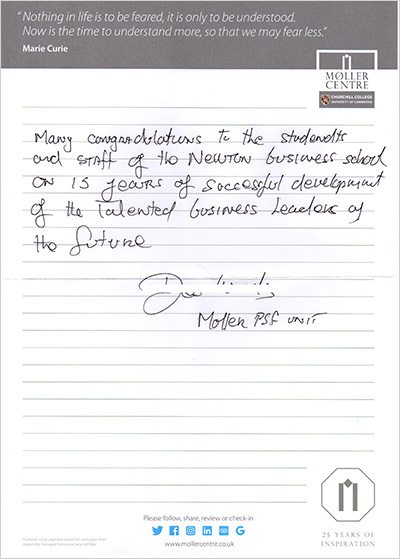 “Nothing in life is to be feared, it is only to be understood.
Now is the time to understand more, so that we may fear less.”
Marie Curie
MØLLER
CENTRE
CHURCHILL COLLEGE
UNIVERSITY OF CAMBRIDGE
Many congradulations to the studendts
and staff of the Newton business school
on 15 years of successful development
of the talented business leaders of
the future
Moller PSF UNIT
25 YEARS OF
INSPIRATION
Please follow, share, review or check-in
www.mollercentre.co.uk